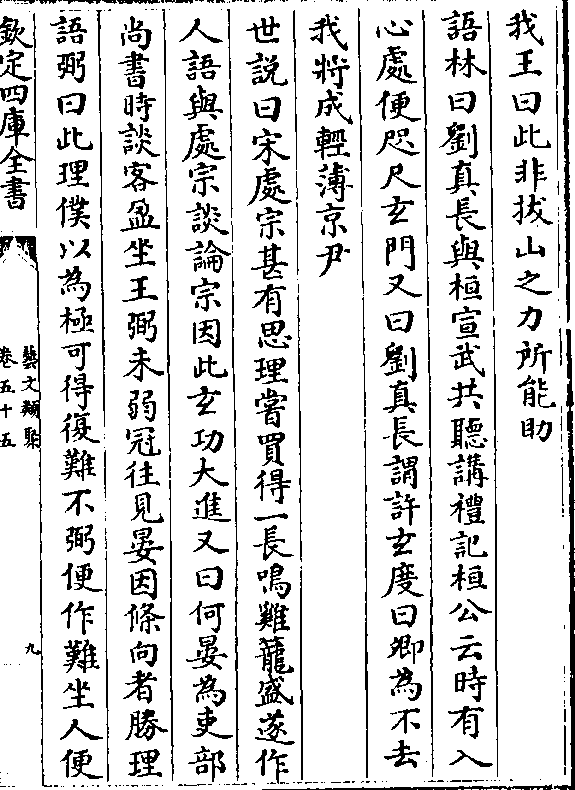 我王曰此非拔山之力所能助
語林曰劉真長與桓宣武共聽講禮記桓公云時有入
心處便咫尺玄門又曰劉真長謂許玄度曰卿為不去
我將成輕薄京尹
世説曰宋處宗甚有思理嘗買得一長鳴雞籠盛遂作
人語與處宗談論宗因此玄功大進又曰何晏為吏部
尚書時談客盈坐王弼未弱冠往見晏因條向者勝理
語弼曰此理僕以為極可得復難不弼便作難坐人便
欽定四庫全書
藝文類聚
卷五十五
九